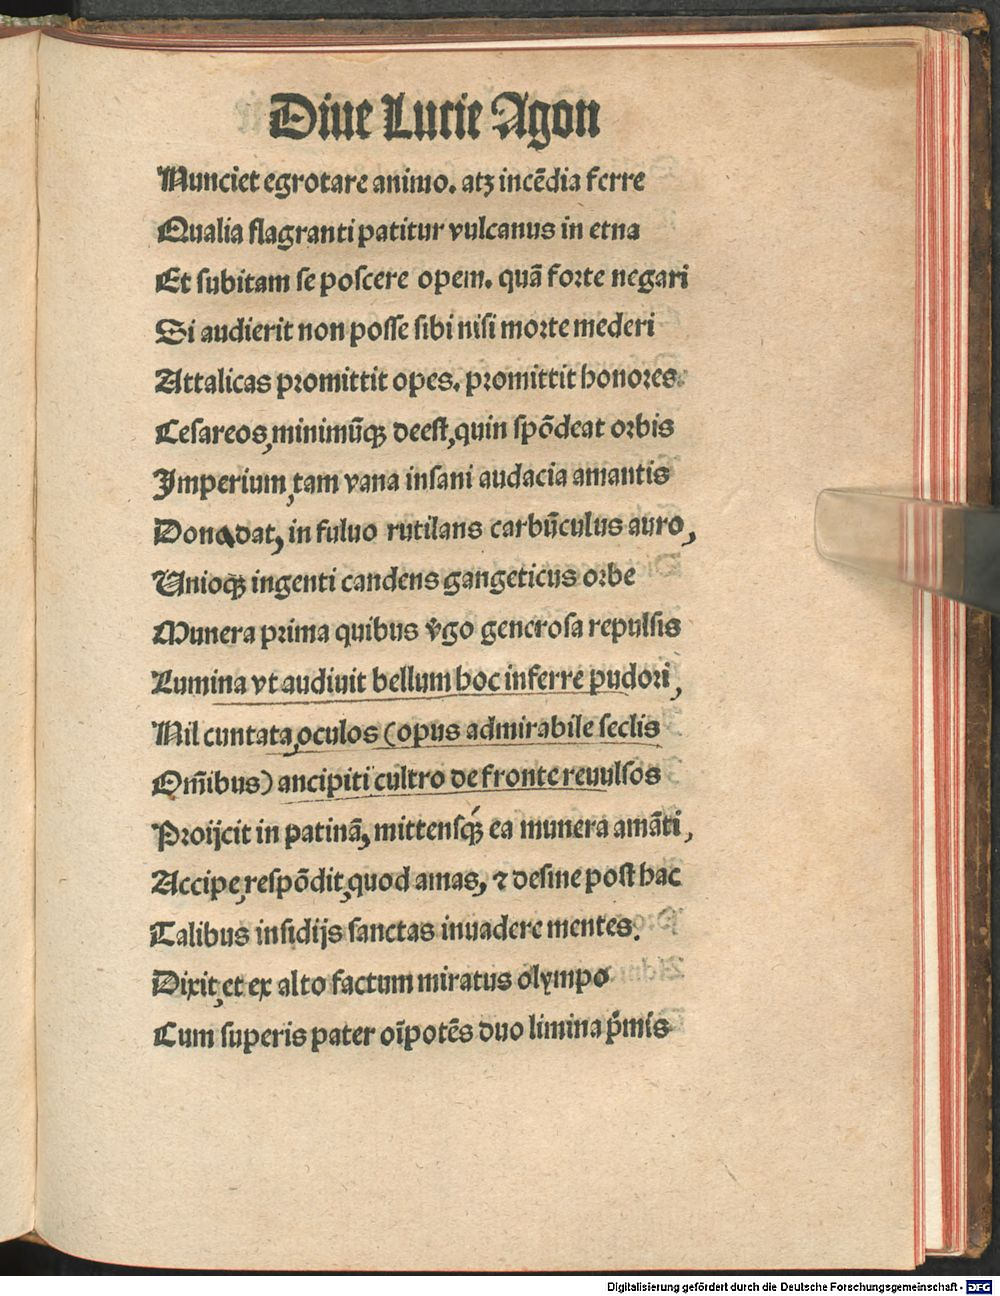 Diue Lucie Agon
Nunciet egrotare animo. atꝫ incēdia ferre
Qualia flagranti patitur vulcanus in etna
Et subitam se poscere opem. quā forte negari
Si audierit non posse sibi nisi morte mederi
Attalicas promittit opes. promittit honores.
Cesareos, minimūqꝫ deest, quin spōdeat orbis
Imperium, tam vana insani audacia amantis
Dona dat, in fuluo rutilans carbūculus auro,
Unioqꝫ ingenti candens gangeticus orbe
Munera prima quibus v̄go generosa repulsis
Lumina vt audiuit bellum hoc inferre pudori,
Nil cuntata, oculos (opus admirabile seclis
Om̄ibus) ancipiti cultro de fronte reuulsos
Proijcit in patinā, mittensqꝫ́ ea munera amāti,
Accipe, respōdit, quod amas, ⁊ desine post hac
Talibus insidijs sanctas inuadere mentes.
Dixit, et ex alto factum miratus olympo
Cum superis pater oīpotēs duo limina p̄mis
Digitalisierung gefördert durch die Deutsche Forschungsgemeinschaft - DFG